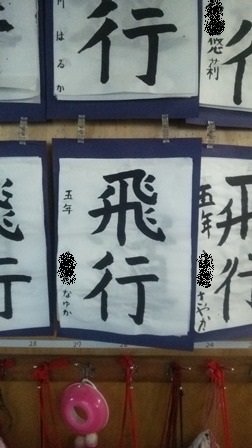 行
はるか
悠莉
飛行
五年
なゆか
飛行
五年
さやか
飛行
28
27
26